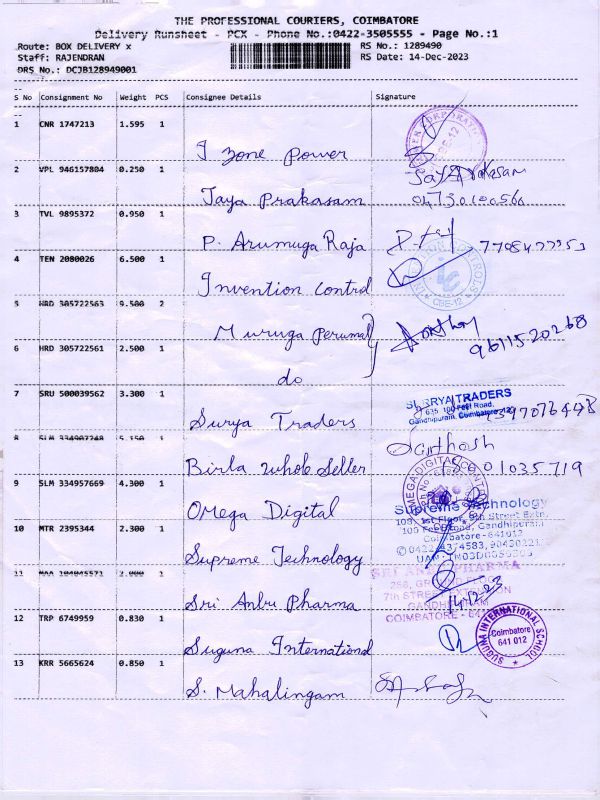 THE PROFESSIONAL COURIERS, COIMBATORE
Delivery Runsheet - PCX - Phone No.:0422-3505555 - Page No.:1
Route: BOX DELIVERY x RS No.: 1289490
Staff: RAJENDRAN RS Date: 14-Dec-2023
DRS No.: DCJB128949001
S No Consignment No Weight PCS Consignee Details Signature
1 CNR 1747213 1.595 1
I zone power
2 VPL 946157804 0.250 1
Jaya Prakasam
3 TVL 9895372 0.950 1
P. Arumuga Raja
4 TEN 2080026 6.500 1
Invention Control
CBE-12
5 HRD 305722563 9.500 2
Muruga Perumal
9611520268
6 HRD 305722561 2.500 1
do
7 SRU 500039562 3.300 1
SURYA TRADERS
635, 100 Feet Road,
Gandhipuram, Coimbatore-12
Surya Traders
8 SLM 334907248 5.150 1
Santhosh
Birla whole Seller
9 SLM 334957669 4.300 1
OMega Digital
Supreme Technology
109, 1st Floor, 9th Street Extn,
100 Feet Road, Gandhipuram,
Coimbatore-641012
10 MTR 2395344 2.300 1
Supreme Technology
11 MAA 104045571 2.000 1
SRI ANBU PHARMA
7th STREET EXTENSION
GANDHIPURAM
COIMBATORE
14.12.23
Sri Anbu Pharma
12 TRP 6749959 0.830 1
Suguna International
SUGUNA INTERNATIONAL SCHOOL
Coimbatore
641 012
13 KRR 5665624 0.850 1
S. Mahalingam